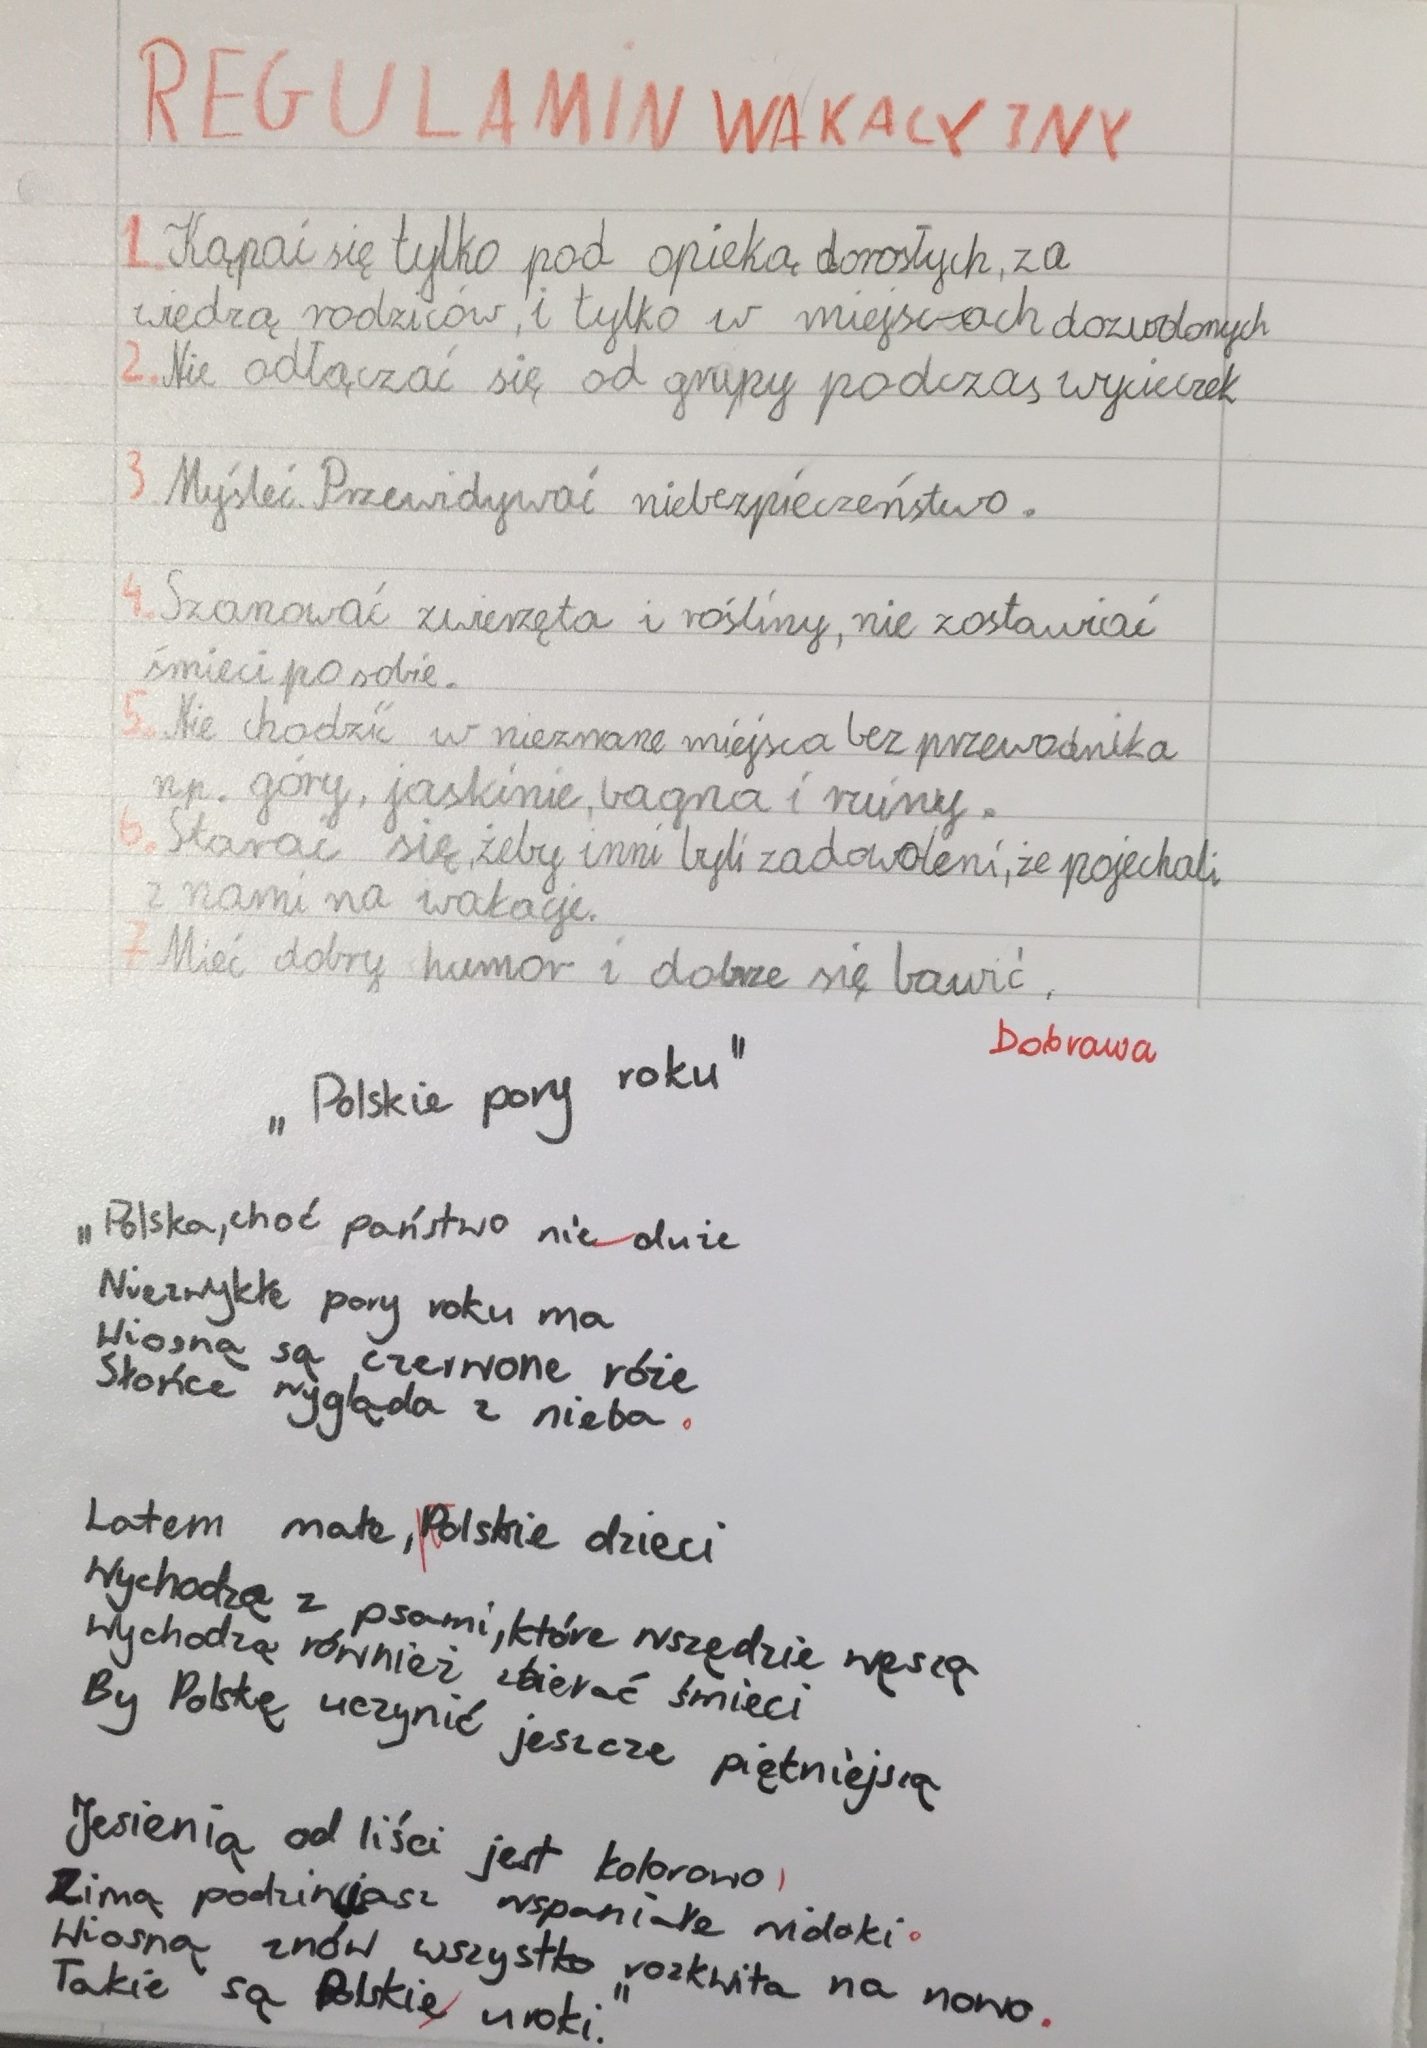 REGULAMIN WAKACYJNY
1. Kąpać się tylko pod opieką dorosłych, za
wiedzą rodziców, i tylko w miejscach dozwolonych
2. Nie odłączać się od grupy podczas wycieczek
3 Myśleć. Przewidywać niebezpieczeństwo.
4. Szanować zwierzęta i rośliny, nie zostawiać
śmieci po sobie.
5. Nie chodzić w nieznane miejsca bez przewodnika
np. góry, jaskinie, bagna i ruiny.
6. Starać się, żeby inni byli zadowoleni, że pojechali
z nami na wakacje.
7 Mieć dobry humor i dobrze się bawić.
Dobrawa
„Polskie pory roku"
„Polska, choć państwo nie duże
Niezwykłe pory roku ma
Wiosną są czerwone róże
Słońce wygląda z nieba.
Latem małe, Polskie dzieci
Wychodzą z psami, które wszędzie węszą
Wychodzą również zbierać śmieci
By Polskę uczynić jeszcze piękniejszą
Jesienią od liści jest kolorowo,
Zimą podziwiasz wspaniałe widoki.
Wiosną znów wszystko rozkwita na nowo.
Takie są Polskie uroki."